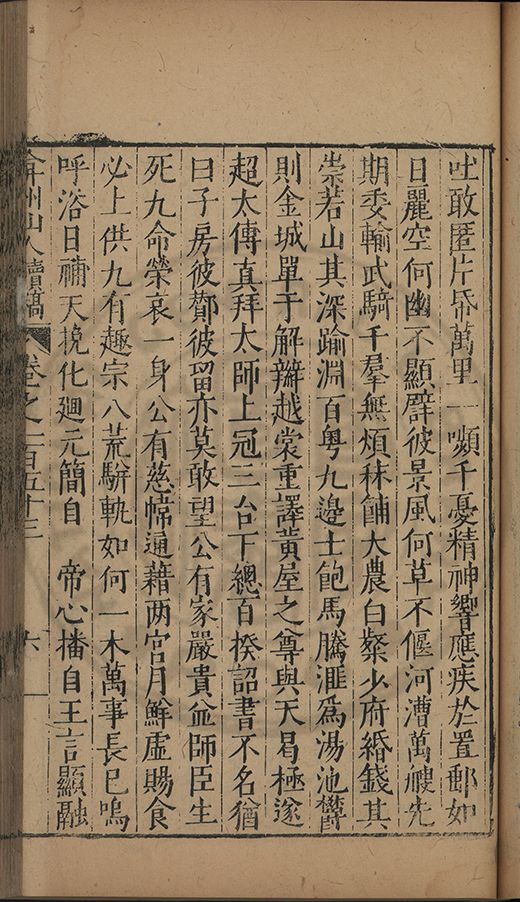 吐敢匿片昬萬里一嚬千憂精神響應疾於置郵如
日麗空何幽不顯辟彼景風何草不偃河漕萬艘先
期委輸武騎千羣無煩秣餔大農白粲少府緡錢其
崇若山其深踰淵百粤九邊士飽馬騰湟爲湯池欝
則金城單于解辮越裳重譯黃屋之尊與天曷極遂
超太傅真拜太師上冠三台下總百揆詔書不名猶
曰子房彼酇彼留亦莫敢望公有家嚴貴並師臣生
死九命榮哀一身公有慈幃通藉兩宮月鮮虛賜食
必上供九有趣宗八荒駢軌如何一木萬事長已嗚
呼浴日禰天挽化廻元簡自　帝心播自王言顯融
弇州山人續稿　卷之一百五十三　六